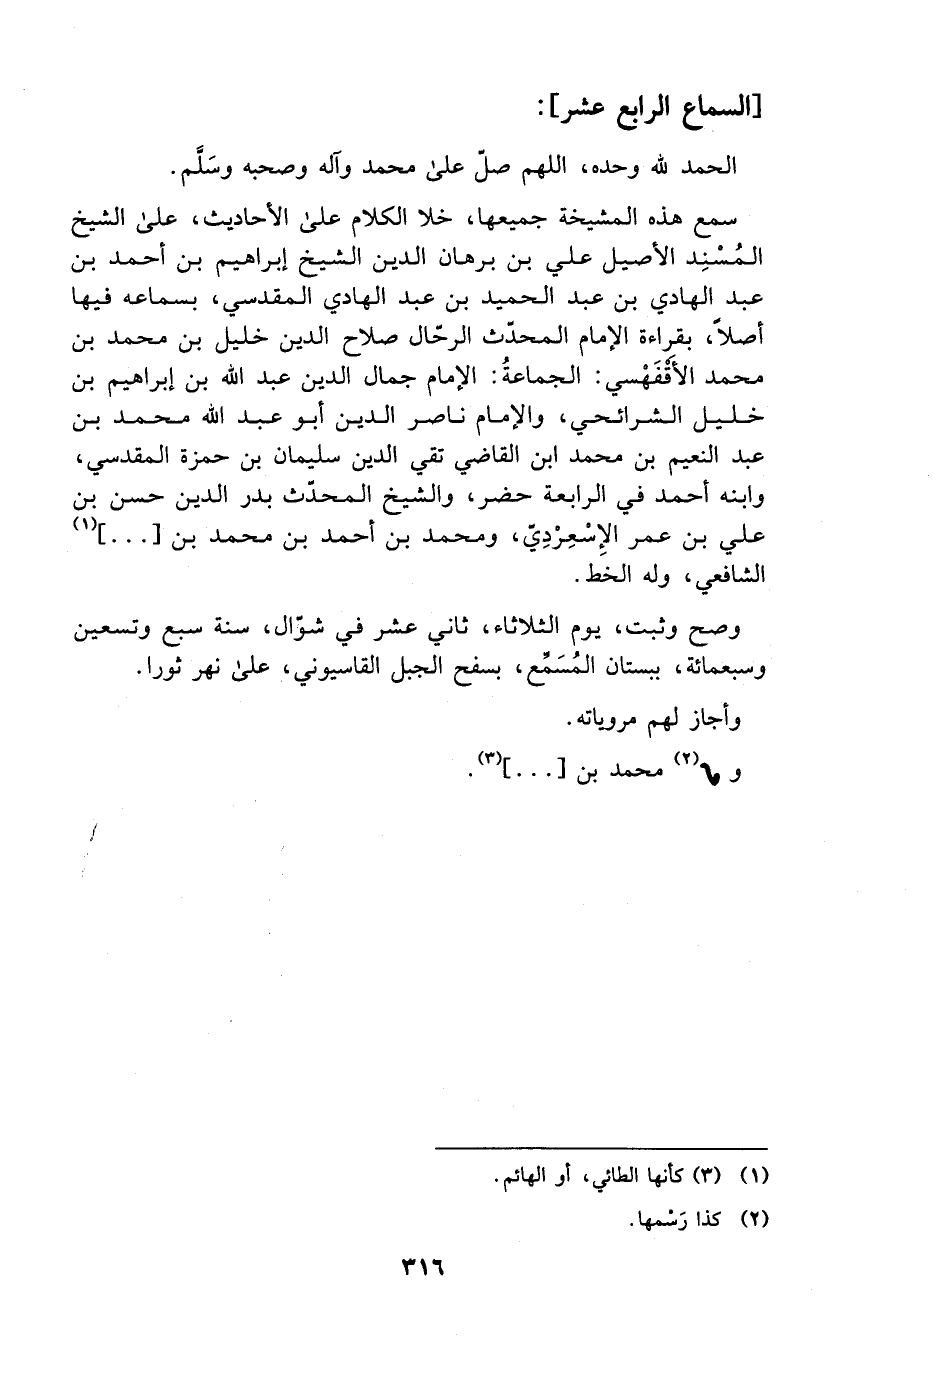 [السماع الرابع عشر]:
الحمد لله وحده، اللهم صلّ علىٰ محمد وآله وصحبه وسَلَّم.
سمع هذه المشيخة جميعها، خلا الكلام علىٰ الأحاديث، علىٰ الشيخ
المُسْنِد الأصيل علي بن برهان الدين الشيخ إبراهيم بن أحمد بن
عبد الهادي بن عبد الحميد بن عبد الهادي المقدسي، بسماعه فيها
أصلاً، بقراءة الإمام المحدّث الرحّال صلاح الدين خليل بن محمد بن
محمد الأَقْفَهْسي: الجماعةُ: الإمام جمال الدين عبد الله بن إبراهيم بن
خليل الشرائحي، والإمام ناصر الدين أبو عبد الله محمد بن
عبد النعيم بن محمد ابن القاضي تقي الدين سليمان بن حمزة المقدسي،
وابنه أحمد في الرابعة حضر، والشيخ المحدّث بدر الدين حسن بن
علي بن عمر الإِسْعِرْدِيّ، ومحمد بن أحمد بن محمد بن [...](١)
الشافعي، وله الخط.
وصح وثبت، يوم الثلاثاء، ثاني عشر في شوّال، سنة سبع وتسعين
وسبعمائة، ببستان المُسَمِّع، بسفح الجبل القاسيوني، علىٰ نهر ثورا.
وأجاز لهم مروياته.
و (٢) محمد بن [...](٣).
(١) (٣) كأنها الطائي، أو الهائم.
(٢) كذا رَسْمها.
٣١٦